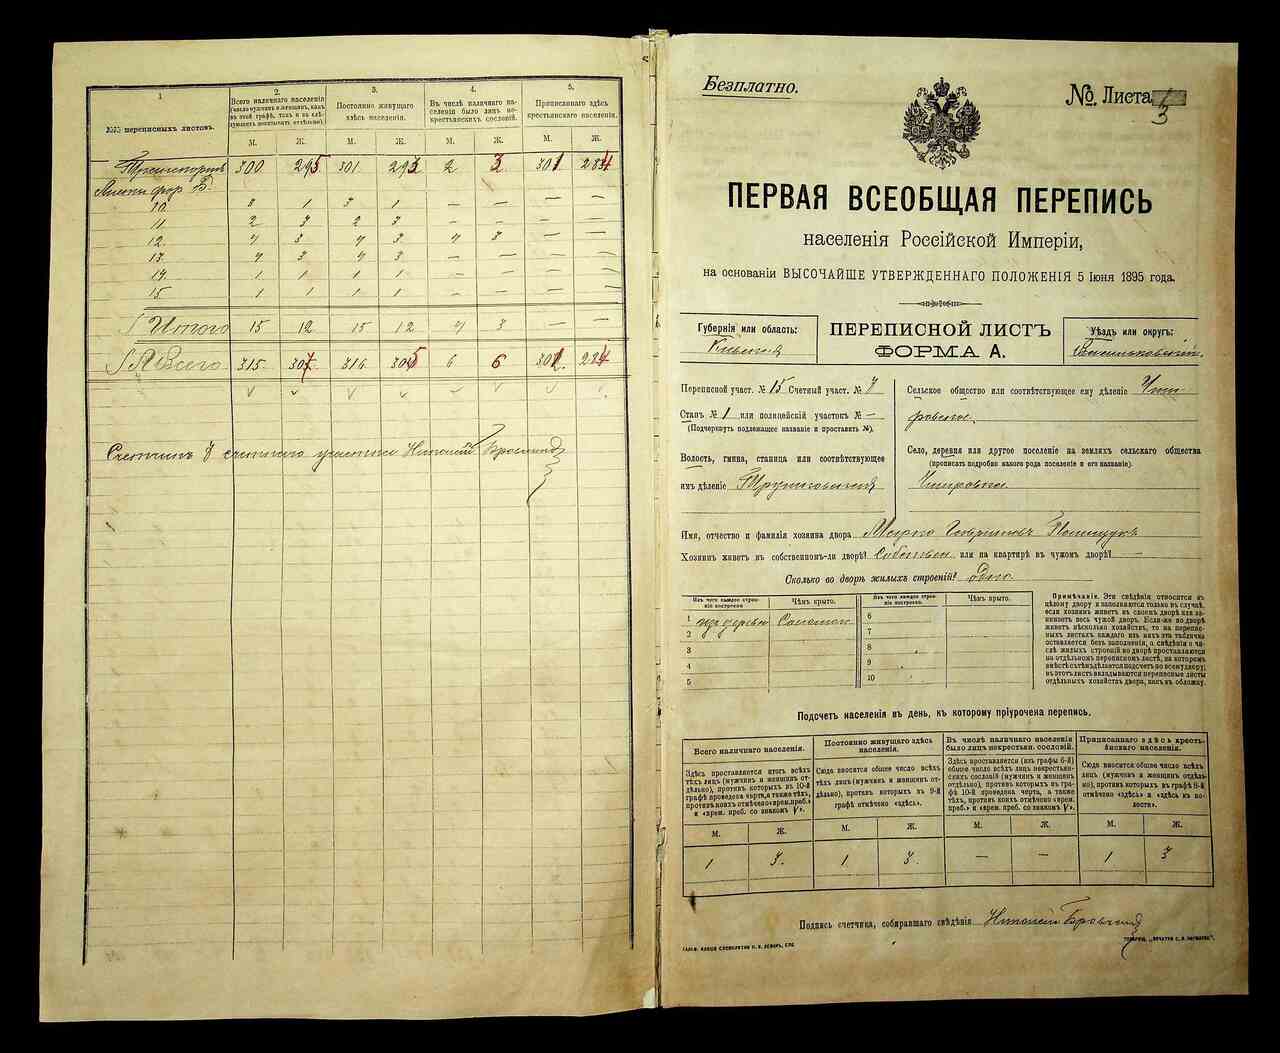 1
2.
3.
4.
5.
№№ переписныхъ листовъ.
Всего наличнаго населенія
Постоянно живущаго
здѣсь населенія.
Въ числѣ наличнаго на-
селенія было лицъ не-
крестьянскихъ сословій.
Приписаннаго здѣсь
крестьянскаго населенія.
М. Ж. М. Ж. М. Ж. М. Ж.
300 295 301 293 2 3 301 284
Форм Б.
10. 3 1 3 1 — — — —
11 2 3 2 3 — — — —
12. 4 3 4 3 4 3 — —
13. 4 3 4 3 — — — —
14. 1 1 1 1 — — — —
15 1 1 1 1 — — — —
Итого 15 12 15 12 4 3 — —
А Всего 315 307 316 305 6 6 301 284
Счетчикъ 7 счетнаго участка
Безплатно.
№ Листа 3
ПЕРВАЯ ВСЕОБЩАЯ ПЕРЕПИСЬ
населенія Россійской Имперіи,
на основаніи ВЫСОЧАЙШЕ УТВЕРЖДЕННАГО ПОЛОЖЕНІЯ 5 Іюня 1895 года.
Губернія или область:
Кіевская
ПЕРЕПИСНОЙ ЛИСТЪ
ФОРМА А.
Уѣздъ или округъ:
Васильковскій.
Переписной участ. № 15 Счетный участ. № 7
Станъ № 1 или полицейскій участокъ № —
(Подчеркнуть подлежащее названіе и проставить №).
Волость, гмина, станица или соотвѣтствующее
имъ дѣленіе
Сельское общество или соотвѣтствующее ему дѣленіе
Село, деревня или другое поселеніе на земляхъ сельскаго общества
(прописать подробно какого рода поселеніе и его названіе).
Имя, отчество и фамилія хозяина двора Марко Полищукъ
Хозяинъ живетъ въ собственномъ-ли дворѣ? Собствен. или на квартирѣ въ чужомъ дворѣ? —
Сколько во дворѣ жилыхъ строеній? одно.
Изъ чего каждое строе-
ніе построено
Чѣмъ крыто.
Изъ чего каждое строе-
ніе построено.
Чѣмъ крыто.
1 изъ дерева Соломой.
2
3
4
5
6
7
8
9
10
Примѣчаніе. Эти свѣдѣнія относятся къ
цѣлому двору и заполняются только въ случаѣ,
если хозяинъ живетъ въ своемъ дворѣ или за-
нимаетъ весь чужой дворъ. Если-же во дворѣ
живетъ нѣсколько хозяйствъ, то на перепис-
ныхъ листахъ каждаго изъ нихъ эта табличка
оставляется безъ заполненія, а свѣдѣнія о чи-
слѣ жилыхъ строеній во дворѣ проставляются
на отдѣльномъ переписномъ листѣ, на которомъ
вмѣстѣ съ тѣмъ дѣлается подсчетъ по всему двору;
въ этотъ листъ вкладываются переписные листы
отдѣльныхъ хозяйствъ двора, какъ въ обложку.
Подсчетъ населенія въ день, къ которому пріурочена перепись.
Всего наличнаго населенія.
Здѣсь проставляется итогъ всѣхъ
тѣхъ лицъ (мужчинъ и женщинъ от-
дѣльно), противъ которыхъ въ 10-й
графѣ проведена черта, а также тѣхъ,
противъ коихъ отмѣчено «врем. преб.»
и «врем. преб. со знакомъ V».
Постоянно живущаго здѣсь
населенія.
Сюда вносится общее число всѣхъ
тѣхъ лицъ (мужчинъ и женщинъ от-
дѣльно), противъ которыхъ въ 9-й
графѣ отмѣчено «здѣсь».
Въ числѣ наличнаго населенія
было лицъ некрестьян. сословій.
Здѣсь проставляется (изъ графы 6-й)
общее число всѣхъ лицъ некрестьян-
скихъ сословій (мужчинъ и женщинъ
отдѣльно), противъ которыхъ въ гра-
фѣ 10-й проведена черта, а также
тѣхъ, противъ коихъ отмѣчено «врем.
преб.» и «врем. преб. со знакомъ V».
Приписаннаго здѣсь кресть-
янскаго населенія.
Сюда вносится общее число всѣхъ
лицъ (мужчинъ и женщинъ отдѣль-
но), противъ которыхъ въ графѣ 8-й
отмѣчено «здѣсь» и «здѣсь къ во-
лости».
М. Ж. М. Ж. М. Ж. М. Ж.
1 3. 1 3. — — 1 3
Подпись счетчика, собиравшаго свѣдѣнія